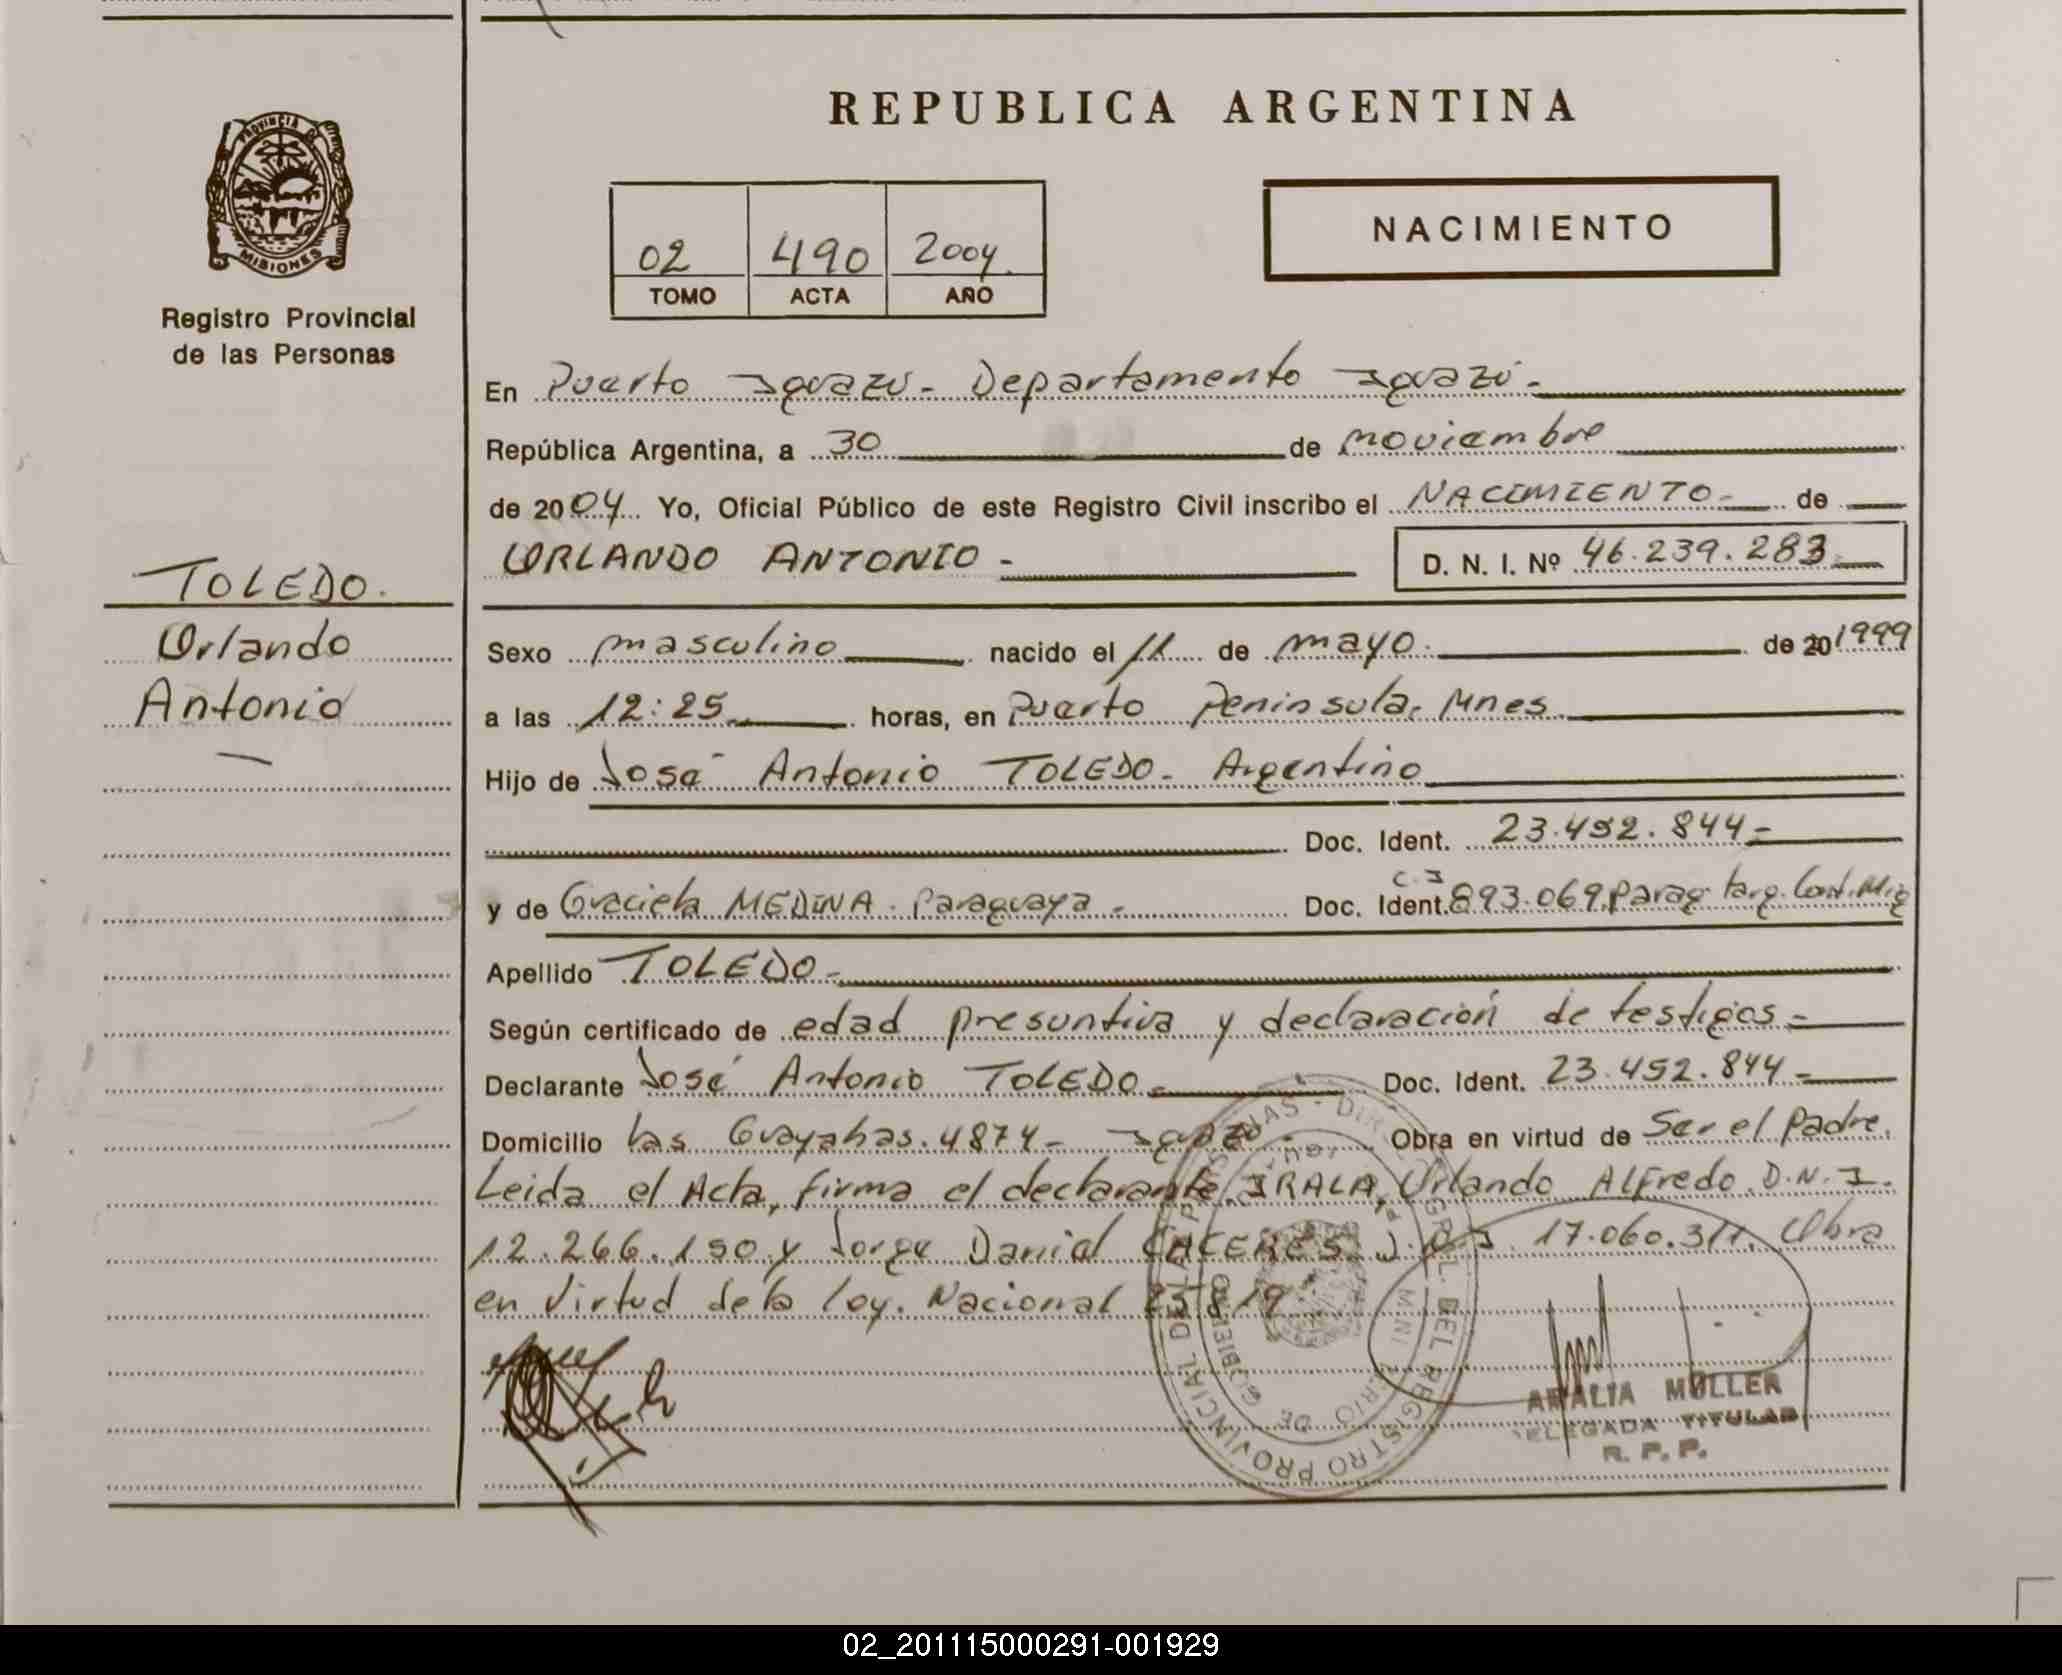 REPUBLICA ARGENTINA
PROVINCIA DE
MISIONES
Registro Provincial
de las Personas
02 490 2004
TOMO ACTA AÑO
NACIMIENTO
En Puerto Iguazú - Departamento Iguazú -
República Argentina, a 30 de noviembre
de 2004 Yo, Oficial Público de este Registro Civil inscribo el NACIMIENTO - de
ORLANDO ANTONIO - D. N. I. Nº 46.239.283
TOLEDO.
Orlando
Antonio
Sexo masculino nacido el 11 de mayo. de 20 1999
a las 12:25 horas, en Puerto Peninsula, Mnes.
Hijo de José Antonio TOLEDO - Argentino
Doc. Ident. 23.452.844 -
y de Graciela MEDINA. Paraguaya - Doc. Ident. C.I 893.069 Parag. targ. Cont. Mig
Apellido TOLEDO -
Según certificado de edad presuntiva y declaración de testigos -
Declarante José Antonio TOLEDO - Doc. Ident. 23.452.844 -
Domicilio las Guayabas. 4874 - Iguazú. Obra en virtud de Ser el Padre.
Leida el Acta, firma el declarante. IRALA, Orlando ALFredo. D.N.I.
12.266.150 y Jorge Daniel CACERES. D.N.I 17.060.311. Obra
en Virtud de la ley. Nacional 25819
REGISTRO PROVINCIAL DE LAS PERSONAS - DIR. GRL. DEL
MINISTERIO DE GOBIERNO
ARALIA MÜLLER
DELEGADA TITULAR
R. P. P.
02_201115000291-001929